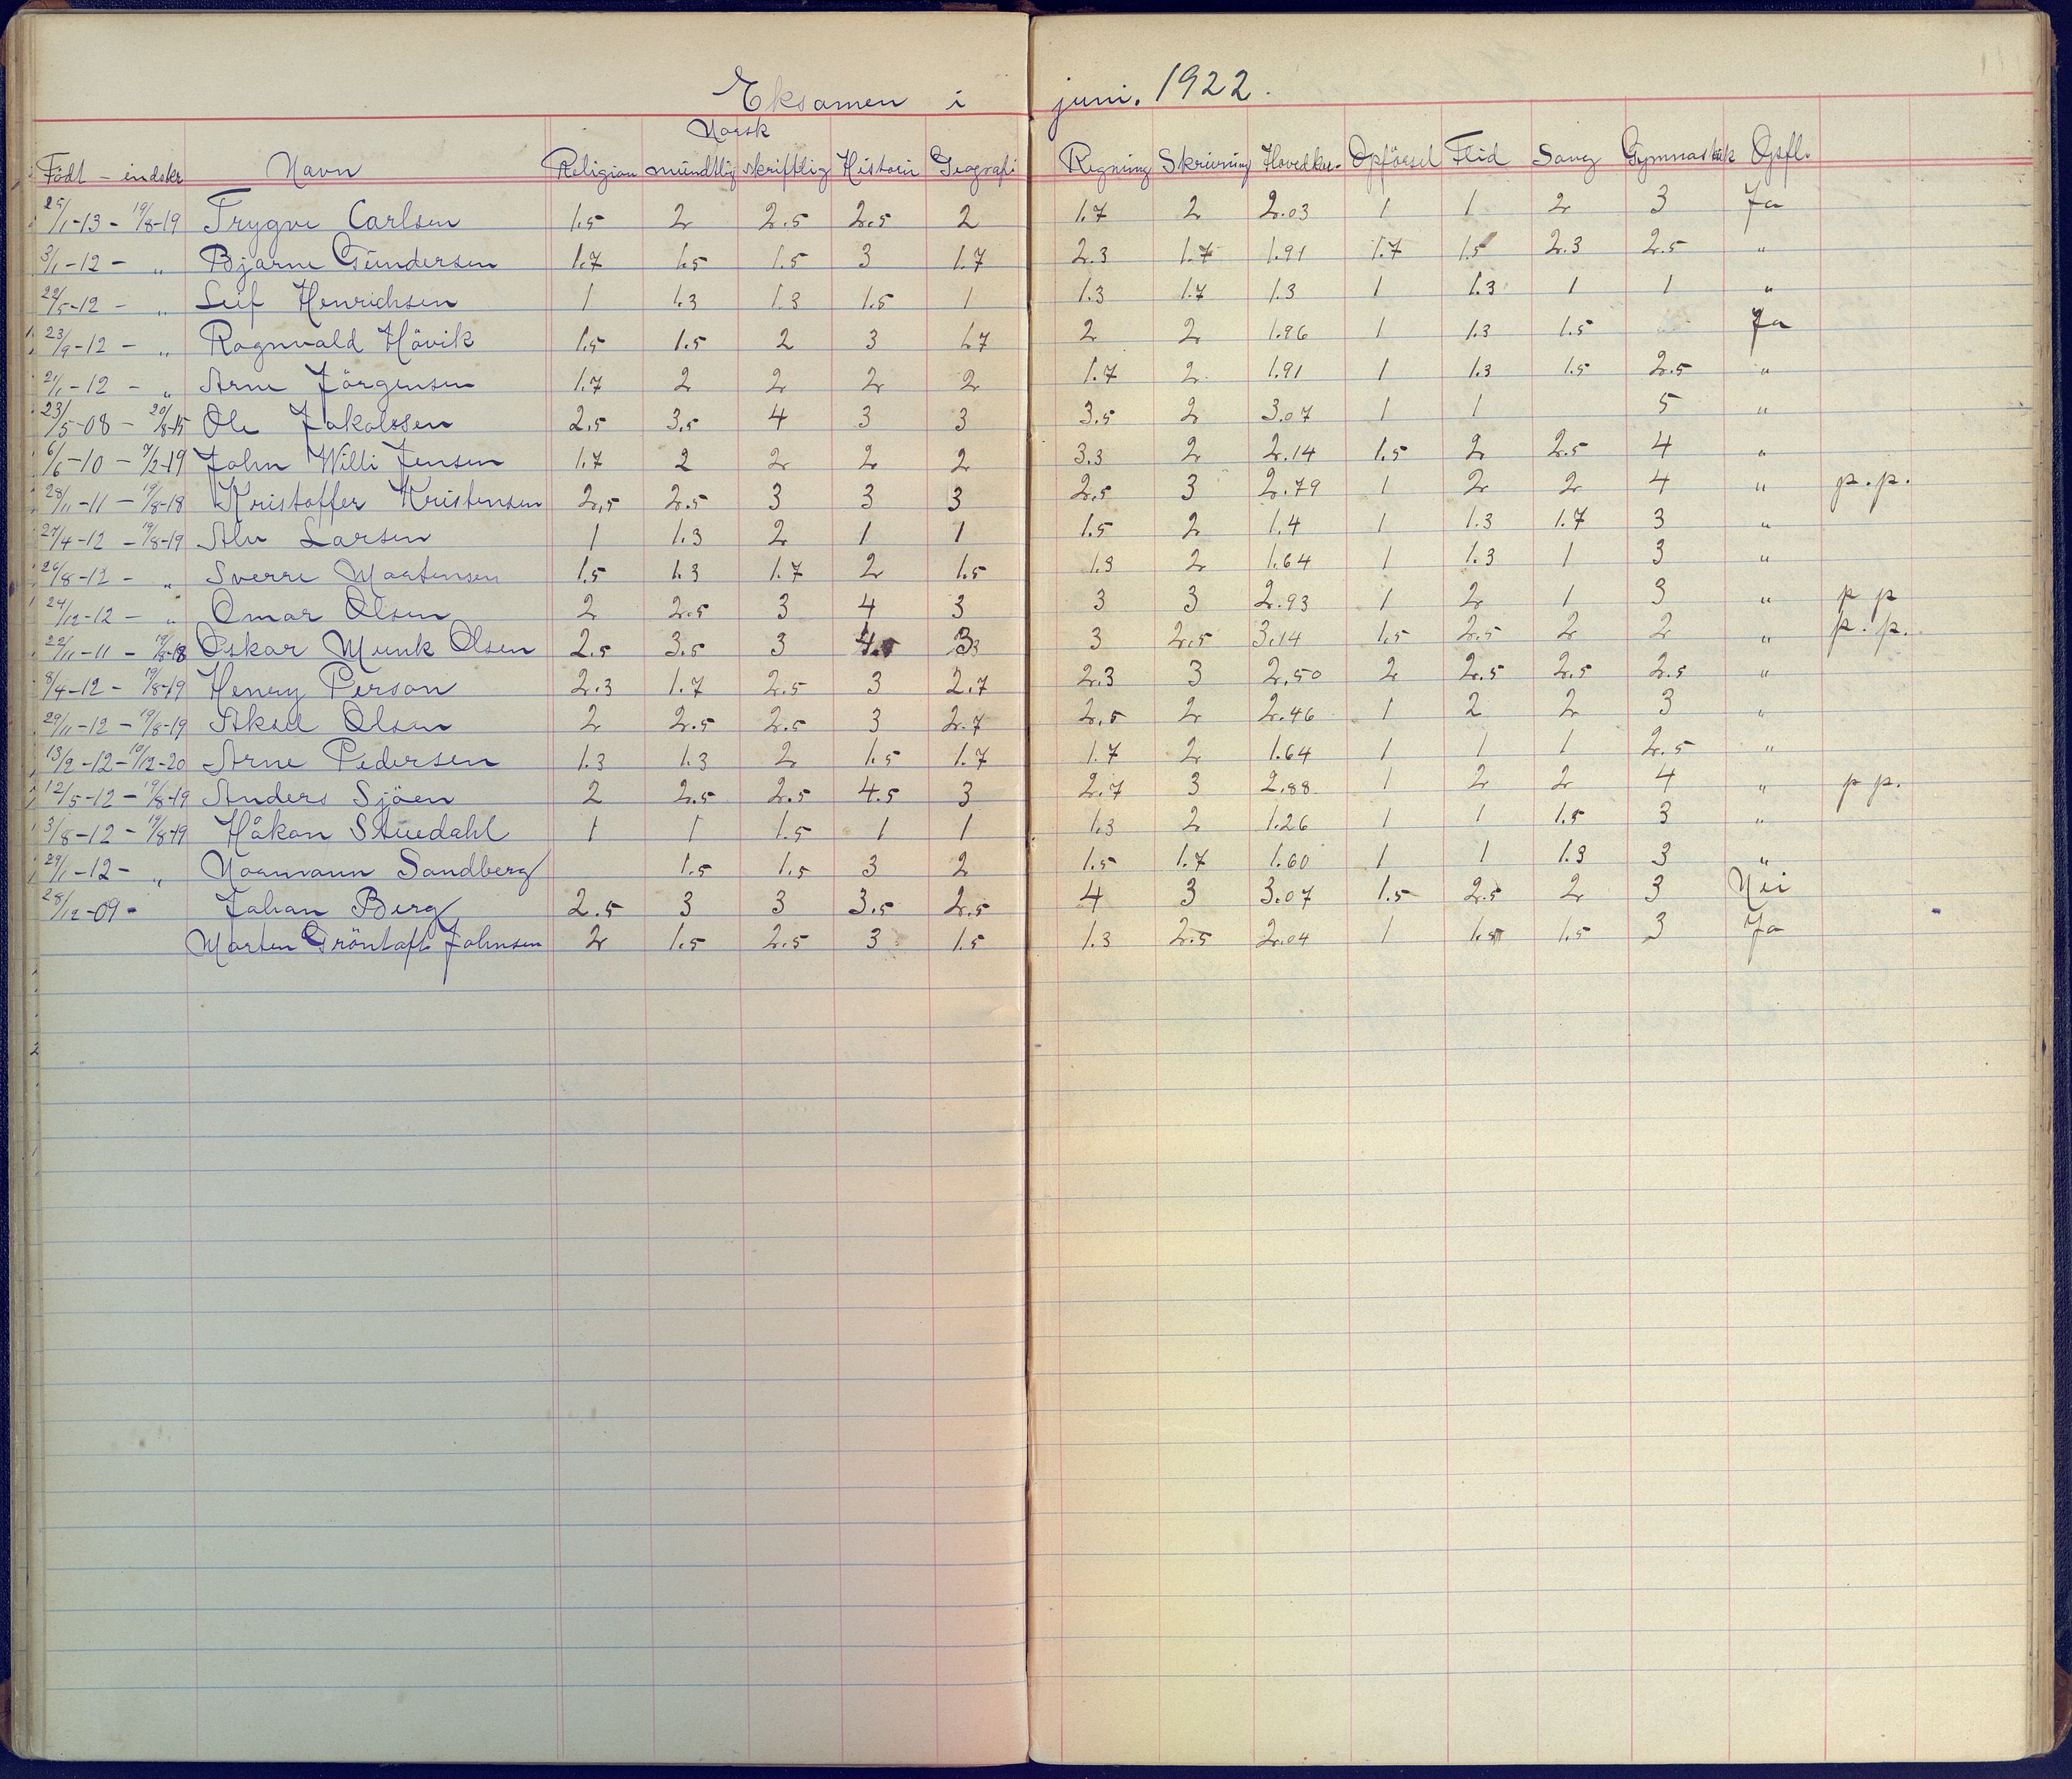 Eksamen i juni. 1922.
Norsk
Födt - indskr Navn Religion mündtlig skriftlig Historie Geografi Regning Skrivning Hovedkar. Opförsel Flid Sang Gymnastik Opfl.
25/1-13 - 19/8-19 Trygve Carlsen 1.5 2 2.5 2.5 2 1.7 2 2.03 1 1 2 3 Ja
3/1-12 - " Bjarne Gündersen 1.7 1.5 1.5 3 1.7 2.3 1.7 1.91 1.7 1.5 2.3 2.5 "
22/5-12 - " Leif Henrichsen 1 1.3 1.3 1.5 1 1.3 1.7 1.3 1 1.3 1 1 "
23/9-12 - " Ragnvald Hövik 1.5 1.5 2 3 1.7 2 2 1.96 1 1.3 1.5 Ja
21/1-12 - " Arne Jörgensen 1.7 2 2 2 2 1.7 2 1.91 1 1.3 1.5 2.5 "
23/5-08 - 20/8-15 Ole Jakobssen 2.5 3.5 4 3 3 3.5 2 3.07 1 1 5 "
6/6-10 - 7/2-19 John Willi Jensen 1.7 2 2 2 2 3.3 2 2.14 1.5 2 2.5 4 "
28/11-11 - 19/8-18 Kristoffer Kristensen 2.5 2.5 3 3 3 2.5 3 2.79 1 2 2 4 " p.p.
27/4-12 - 19/8-19 Alv Larsen 1 1.3 2 1 1 1.5 2 1.4 1 1.3 1.7 3 "
26/8-12 - " Sverre Martensen 1.5 1.3 1.7 2 1.5 1.3 2 1.64 1 1.3 1 3 "
24/12-12 - " Omar Olsen 2 2.5 3 4 3 3 3 2.93 1 2 1 3 " p p
22/11-11 - 19/8-18 Oskar Munk Olsen 2.5 3.5 3 4.5 3 3 2.5 3.14 1.5 2.5 2 2 " p.p.
8/4-12 - 19/8-19 Henry Person 2.3 1.7 2.5 3 2.7 2.3 3 2.50 2 2.5 2.5 2.5 "
29/11-12 - 19/8-19 Aksel Olsen 2 2.5 2.5 3 2.7 2.5 2 2.46 1 2 2 3 "
13/2-12 - 10/12-20 Arne Pedersen 1.3 1.3 2 1.5 1.7 1.7 2 1.64 1 1 1 2.5 "
12/5-12 - 19/8-19 Anders Sjöen 2 2.5 2.5 4.5 3 2.7 3 2.88 1 2 2 4 " p p.
3/8-12 - 19/8-19 Håkon Stuedahl 1 1 1.5 1 1 1.3 2 1.26 1 1 1.5 3 "
29/1-12 - " Normann Sandberg 1.5 1.5 3 2 1.5 1.7 1.60 1 1 1.3 3 "
28/12-09 - Johan Berg 2.5 3 3 3.5 2.5 4 3 3.07 1.5 2.5 2 3 Nei
Morten Gröntoft Johnsen 2 1.5 2.5 3 1.5 1.3 2.5 2.04 1 1.5 1.5 3 Ja